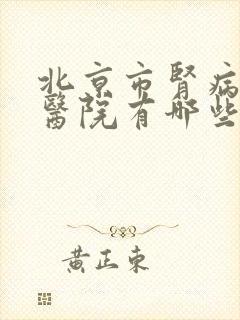 北京市腎病
醫院有哪些
黃正東